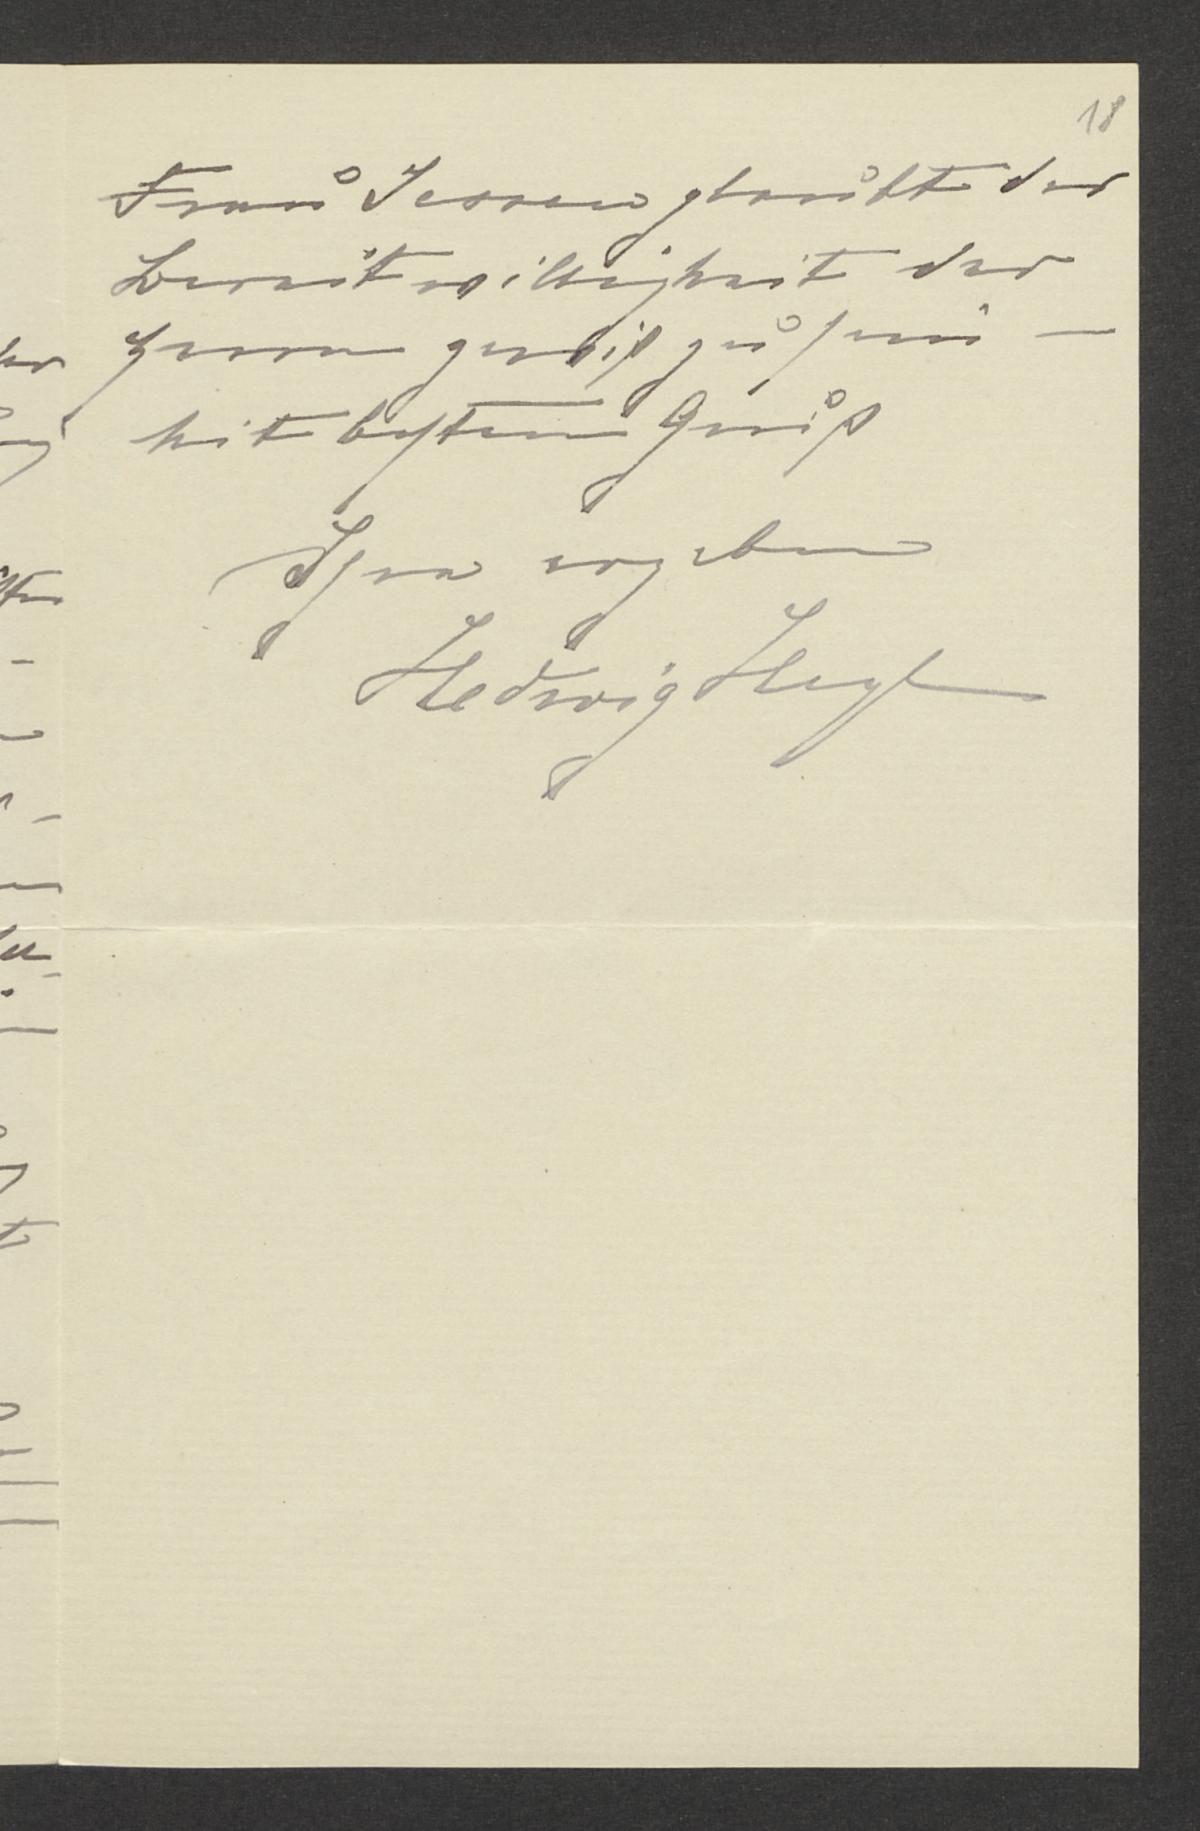 18
Frau Jessen glaubt der
Bereitwilligkeit der
Herren gewiß zu sein —
Mit bestem Gruß
Ihre ergebene
Hedwig Heyl